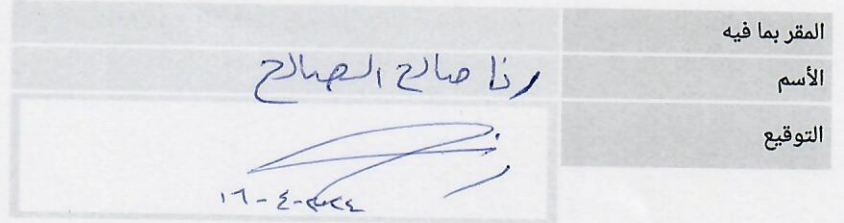 المقر بما فيه
الأسم رنا صالح الصالح
التوقيع
١٦-٤-٢٠٢٤